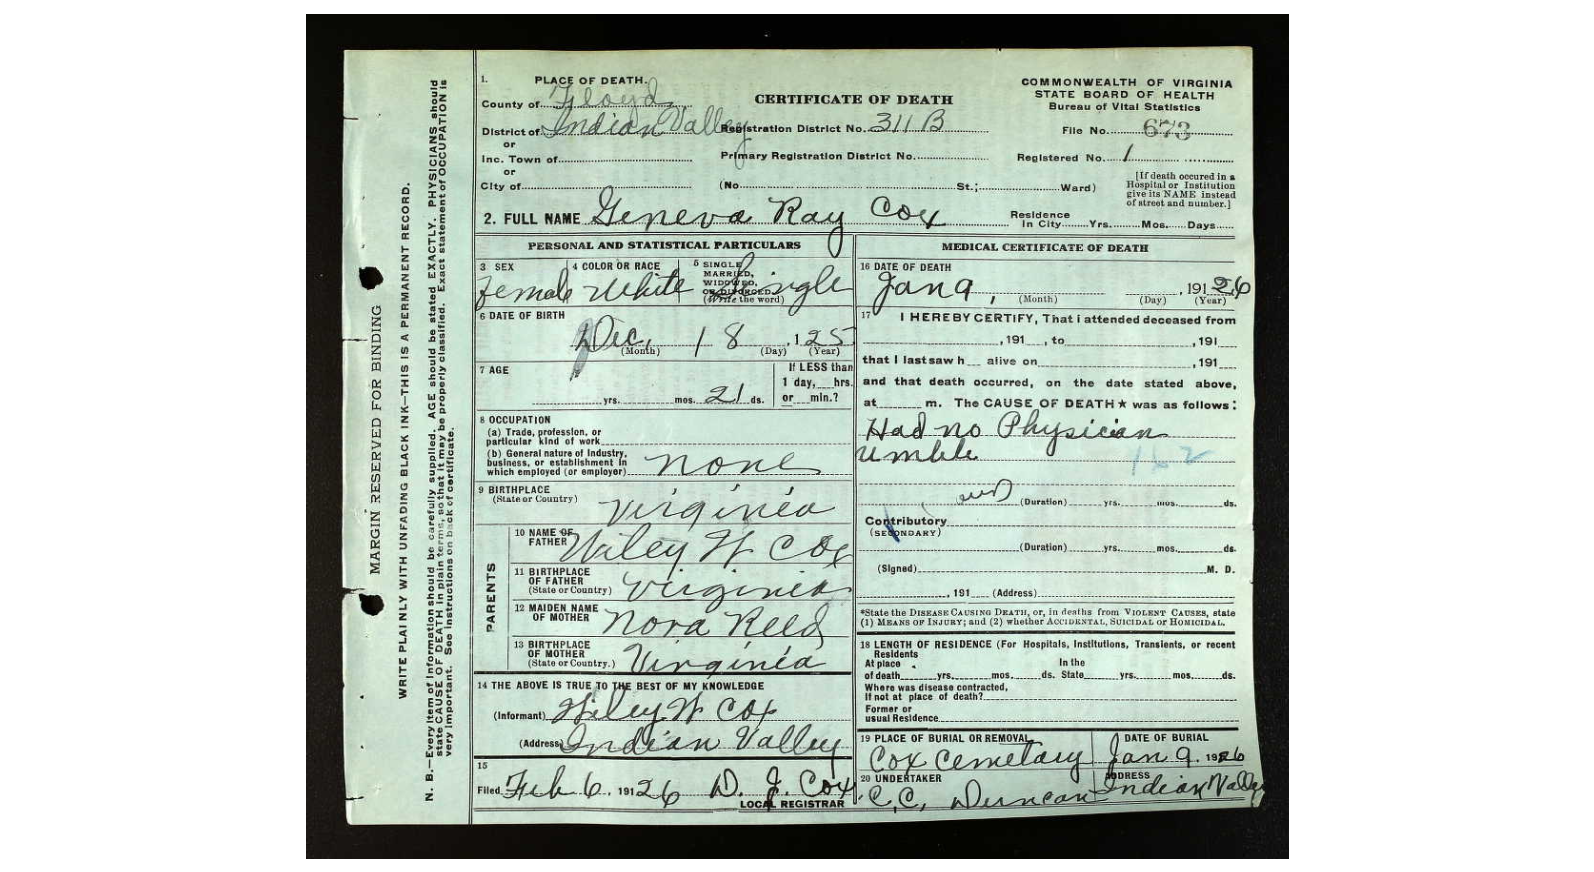 MARGIN RESERVED FOR BINDING
WRITE PLAINLY WITH UNFADING BLACK INK—THIS IS A PERMANENT RECORD.
N. B.—Every item of information should be carefully supplied. AGE should be stated EXACTLY. PHYSICIANS should
state CAUSE OF DEATH in plain terms, so that it may be properly classified. Exact statement of OCCUPATION is
very important. See instructions on back of certificate.
1. PLACE OF DEATH.
County of Floyd
District of Indian Valley
or
Inc. Town of
or
City of
CERTIFICATE OF DEATH
Registration District No. 311 B
Primary Registration District No.
(No. St.; Ward)
COMMONWEALTH OF VIRGINIA
STATE BOARD OF HEALTH
Bureau of Vital Statistics
File No. 673
Registered No. 1
[If death occured in a
Hospital or Institution
give its NAME instead
of street and number.]
2. FULL NAME Geneva Ray Cox
Residence
In City Yrs. Mos. Days
PERSONAL AND STATISTICAL PARTICULARS
3 SEX
female
4 COLOR OR RACE
White
5 SINGLE
MARRIED,
WIDOWED,
OR DIVORCED
(Write the word)
Single
6 DATE OF BIRTH
Dec, 18, 1 25
(Month) (Day) (Year)
7 AGE
yrs. mos. 21 ds.
If LESS than
1 day, hrs.
or min.?
8 OCCUPATION
(a) Trade, profession, or
particular kind of work
(b) General nature of Industry,
business, or establishment in
which employed (or employer) none
9 BIRTHPLACE
(State or Country) Virginia
PARENTS
10 NAME OF
FATHER Wiley W Cox
11 BIRTHPLACE
OF FATHER
(State or Country) Virginia
12 MAIDEN NAME
OF MOTHER Nora Reed
13 BIRTHPLACE
OF MOTHER
(State or Country.) Virginia
14 THE ABOVE IS TRUE TO THE BEST OF MY KNOWLEDGE
(Informant) Wiley W Cox
(Address) Indian Valley
15
Filed Feb 6, 191 26 D. J. Cox
LOCAL REGISTRAR
MEDICAL CERTIFICATE OF DEATH
16 DATE OF DEATH
Jan 9, , 191 26
(Month) (Day) (Year)
17 I HEREBY CERTIFY, That i attended deceased from
, 191 , to , 191
that I last saw h alive on , 191
and that death occurred, on the date stated above,
at m. The CAUSE OF DEATH★ was as follows:
Had no Physician
(Duration) yrs. mos. ds.
Contributory
(SECONDARY)
(Duration) yrs. mos. ds.
(Signed) M. D.
, 191 (Address)
*State the DISEASE CAUSING DEATH, or, in deaths from VIOLENT CAUSES, state
(1) MEANS OF INJURY; and (2) whether ACCIDENTAL, SUICIDAL or HOMICIDAL.
18 LENGTH OF RESIDENCE (For Hospitals, Institutions, Transients, or recent
Residents
At place In the
of death yrs. mos. ds. State yrs. mos. ds.
Where was disease contracted,
If not at place of death?
Former or
usual Residence
19 PLACE OF BURIAL OR REMOVAL
Cox Cemetary
DATE OF BURIAL
Jan 9. 1926
20 UNDERTAKER
C, C, Duncan
ADDRESS
Indian Valley